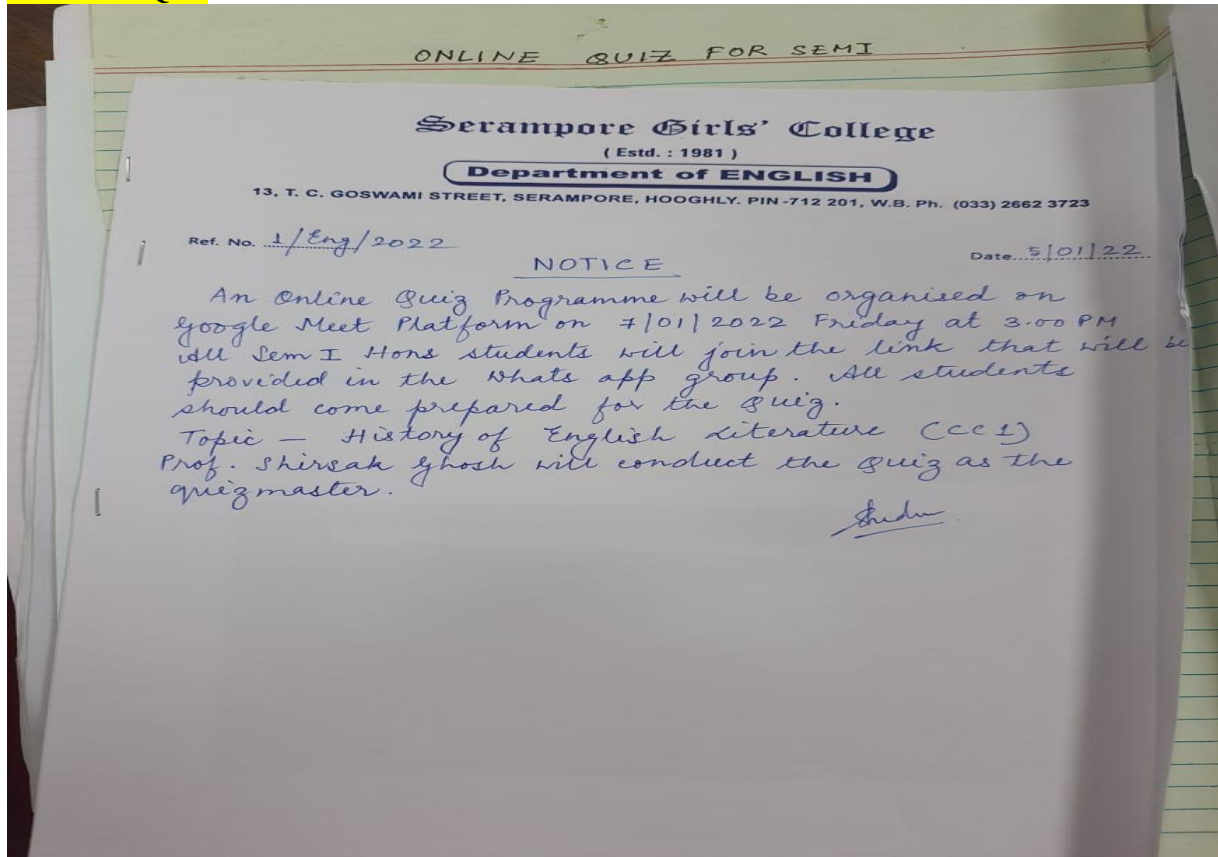 ONLINE QUIZ FOR SEM I
Serampore Girls' College
( Estd. : 1981 )
Department of ENGLISH
13, T. C. GOSWAMI STREET, SERAMPORE, HOOGHLY. PIN-712 201, W.B. Ph. (033) 2662 3723
Ref. No. 1/Eng/2022 Date 5/01/22
NOTICE
An Online Quiz Programme will be organised on
Google Meet Platform on 7/01/2022 Friday at 3.00 PM
All Sem I Hons students will join the link that will be
provided in the Whats app group. All students
should come prepared for the Quiz.
Topic — History of English Literature (CC1)
Prof. Shirsak Ghosh will conduct the Quiz as the
quizmaster.